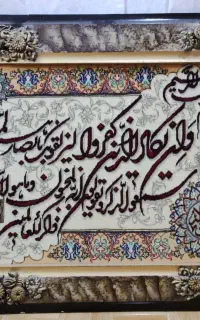 الرحیم
وان یکاد الذین کفروا لیزلقونک بابصا
سمعوا الذکر ویقولون انه لمجنون وما هو الا
ذکر للعالمین